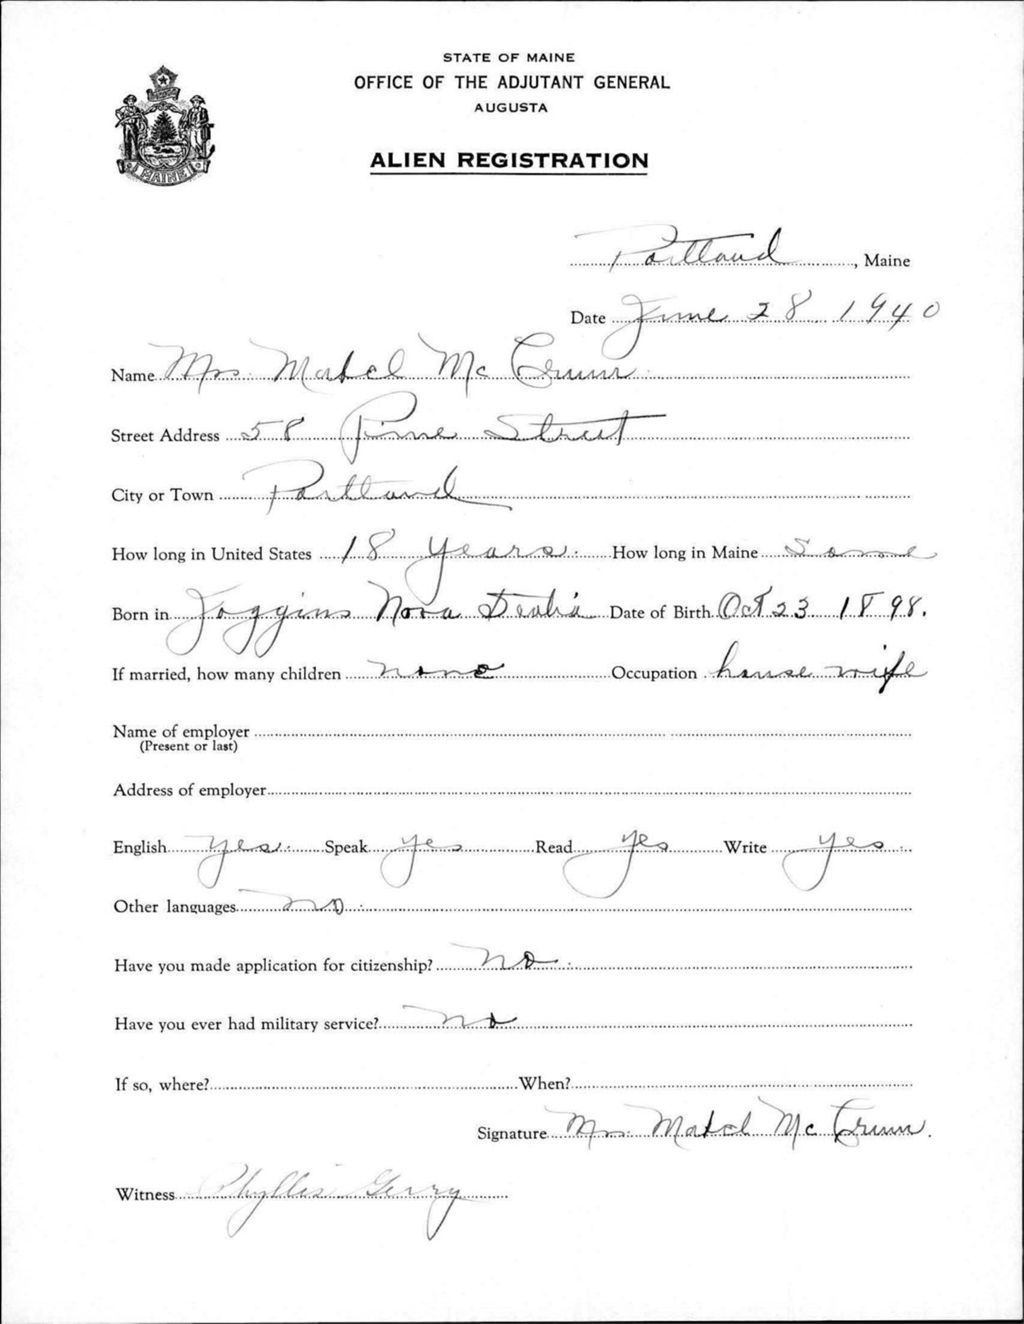 STATE OF MAINE
OFFICE OF THE ADJUTANT GENERAL
AUGUSTA
ALIEN REGISTRATION
MAINE
Portland, Maine
Date June 28 1940
Name Mrs. Mabel Mc Crum
Street Address 58 Pine Street
City or Town Portland
How long in United States 18 years. How long in Maine Same
Born in Joggins Nova Scotia Date of Birth Oct 23 1898.
If married, how many children none Occupation house wife
Name of employer
(Present or last)
Address of employer
English yes. Speak yes Read yes Write yes
Other languages no.
Have you made application for citizenship? no.
Have you ever had military service? no
If so, where? When?
Signature Mrs Mabel Mc Crum.
Witness Phyllis Gerry